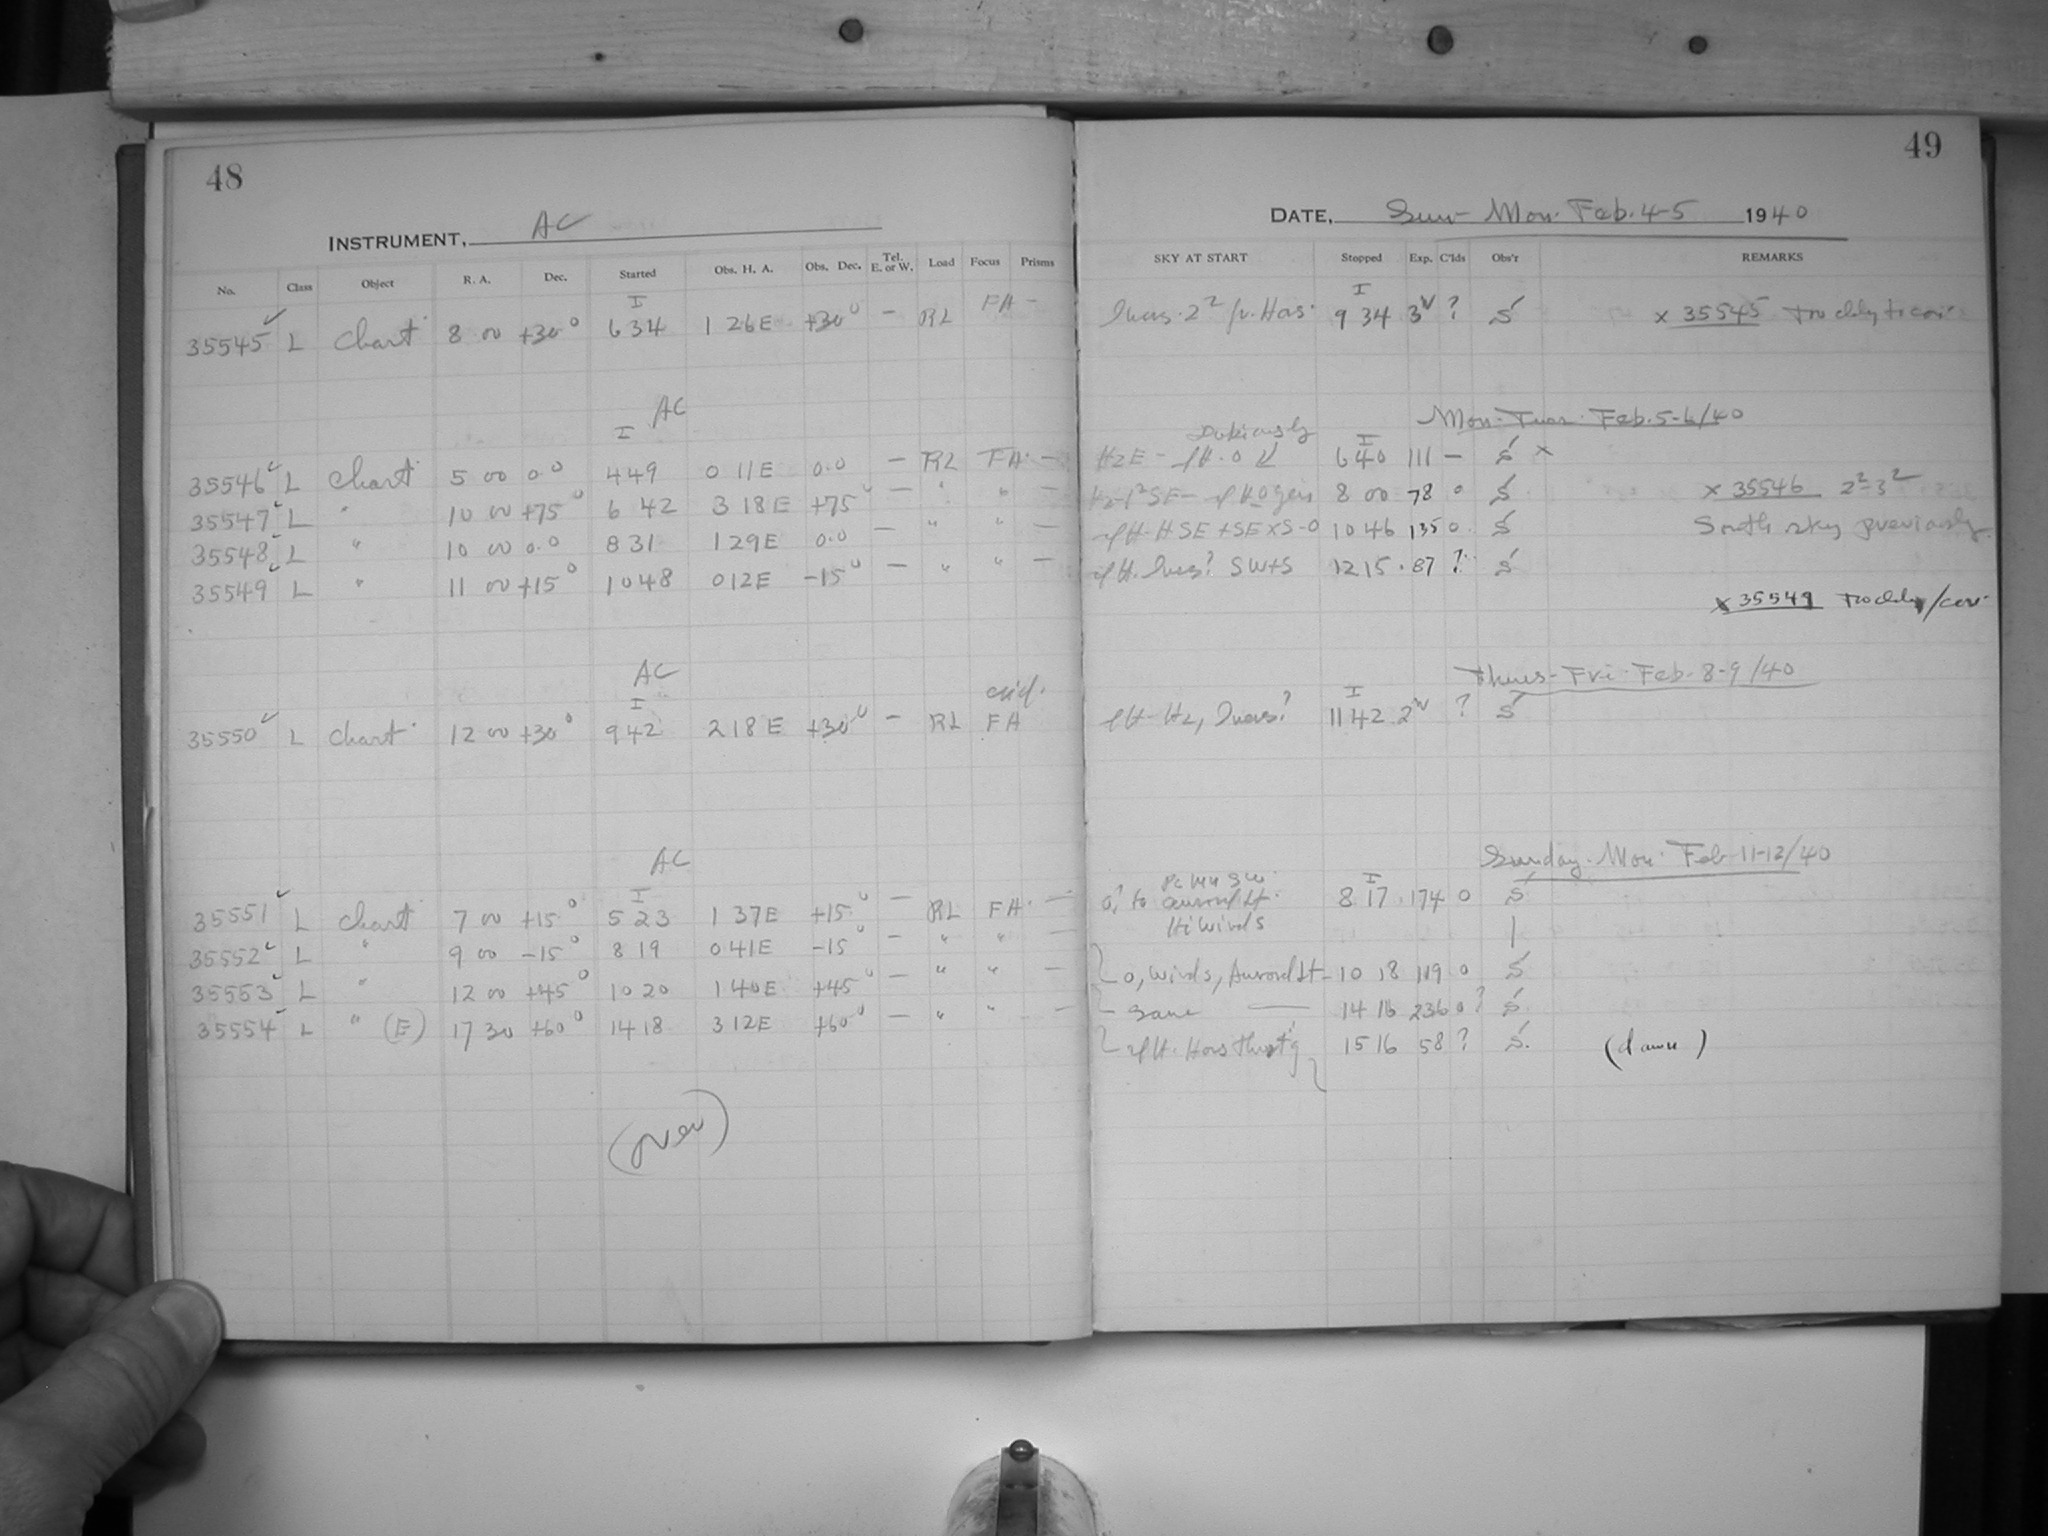 48
INSTRUMENT, AC
No. Class Object R. A. Dec. Started Obs. H. A. Obs. Dec. Tel. E. or W. Load Focus Prisms
I
35545 ✓ L Chart 8 00 +30° 6 34 1 26 E +30° — RL FA —
AC
I
35546 ✓ L Chart 5 00 0.0 4 49 0 11 E 0.0 — RL FA —
35547 ✓ L " 10 00 +75° 6 42 3 18 E +75° — " " —
35548 ✓ L " 10 00 0.0 8 31 1 29 E 0.0 — " " —
35549 ✓ L " 11 00 +15° 10 48 0 12 E -15° — " " —
AC
I
35550 ✓ L Chart 12 00 +30° 9 42 2 18 E +30° — RL FA
AC
I
35551 ✓ L Chart 7 00 +15° 5 23 1 37 E +15° — RL FA —
35552 ✓ L " 9 00 -15° 8 19 0 41 E -15° — " " —
35553 ✓ L " 12 00 +45° 10 20 1 40 E +45° — " " —
35554 ✓ L " (E) 17 30 +60° 14 18 3 12 E +60° — " " —
(over)
49
DATE, Sun-Mon. Feb. 4-5 1940
SKY AT START Stopped Exp. C'lds Obs'r REMARKS
I
9 34 3 ? S x 35545
Mon-Tues. Feb. 5-6/40
I
6 40 111 — S x
8 00 78 0 S x 35546 2²-3²
10 46 135 0 S South sky previously
SW+S 12 15 87 ? S
x 35549
Thurs-Fri Feb. 8-9/40
I
11 42 2 ? S
Sunday-Mon. Feb 11-12/40
I
8 17 174 0 S
Hi Winds
0, Winds, 10 18 119 0 S
Same — 14 16 236 0? S
15 16 58 ? S. (dawn)